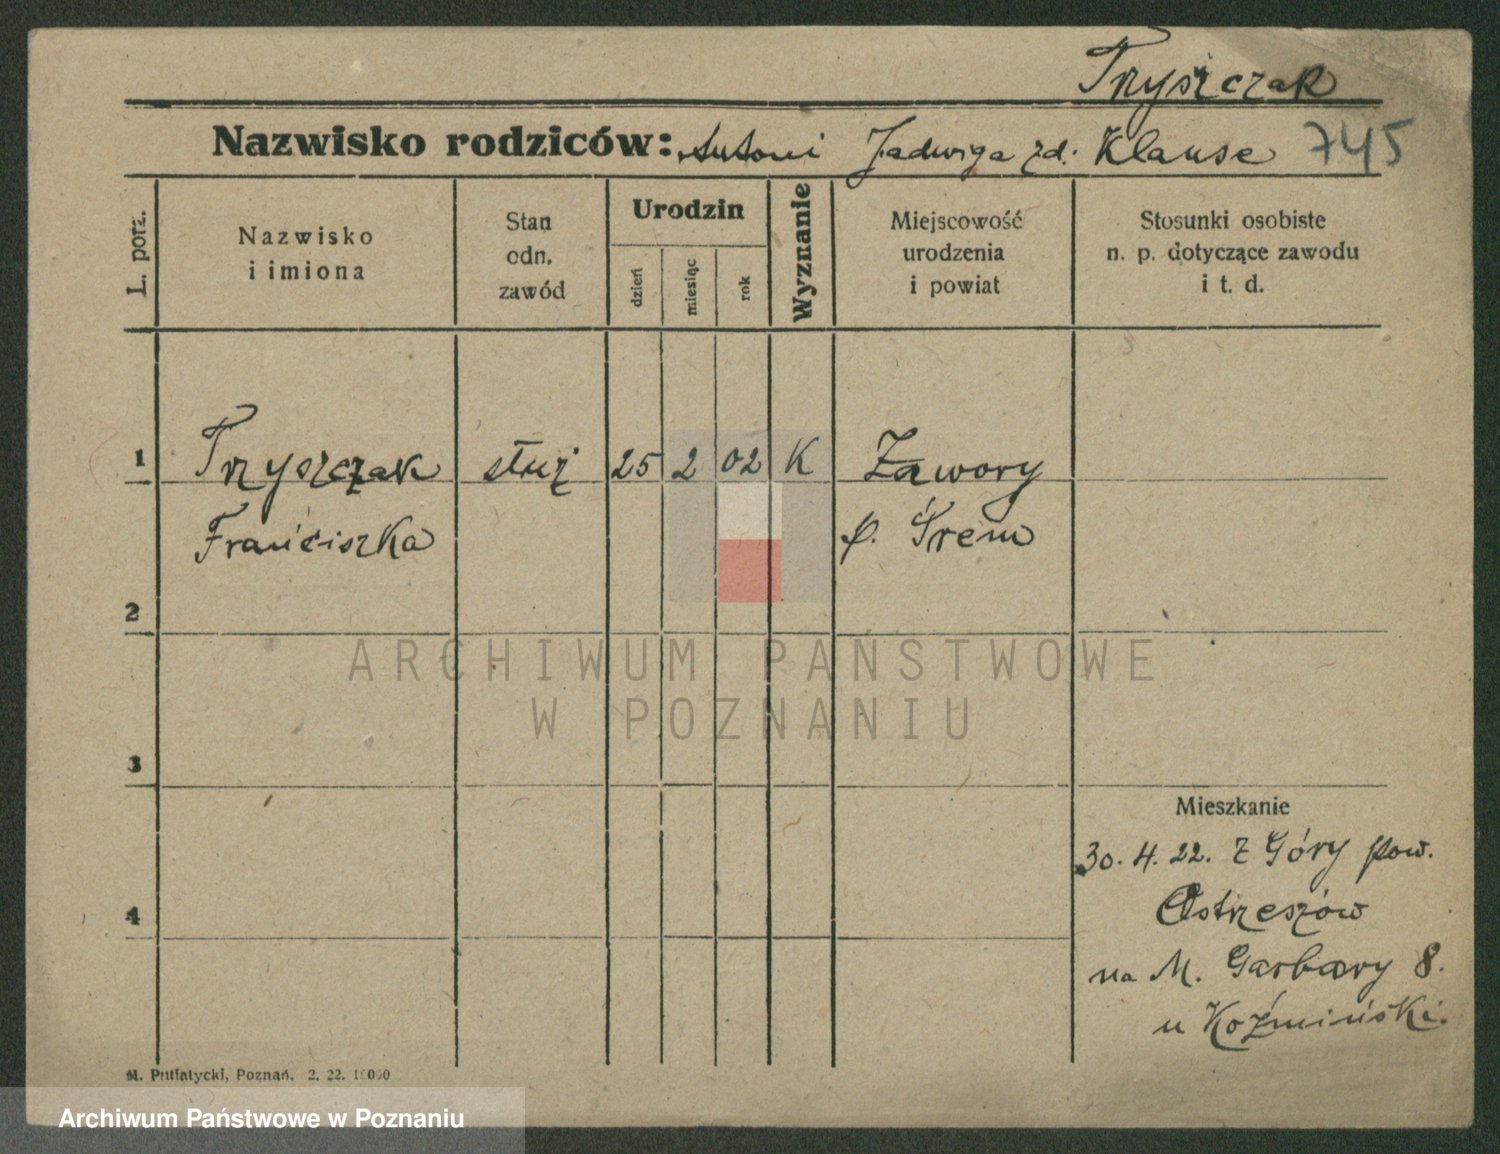 Tryszczak
Nazwisko rodziców: Antoni Jadwiga zd. Klause 745
L. porz.
Nazwisko
i imiona
Stan
odn.
zawód
Urodzin
dzień
miesiąc
rok
Wyznanie
Miejscowość
urodzenia
i powiat
Stosunki osobiste
n. p. dotyczące zawodu
i t. d.
1 Tryszczak służ 25 2 02 K Zawory
Franciszka p. Śrem
2
3
4
Mieszkanie
30. 4. 22. z Góry pow.
Ostrzeszów
na M. Garbary 8.
u Koźmiński.
M. Putiatycki, Poznań. 2. 22. 10000
ARCHIWUM PAŃSTWOWE
W POZNANIU
Archiwum Państwowe w Poznaniu